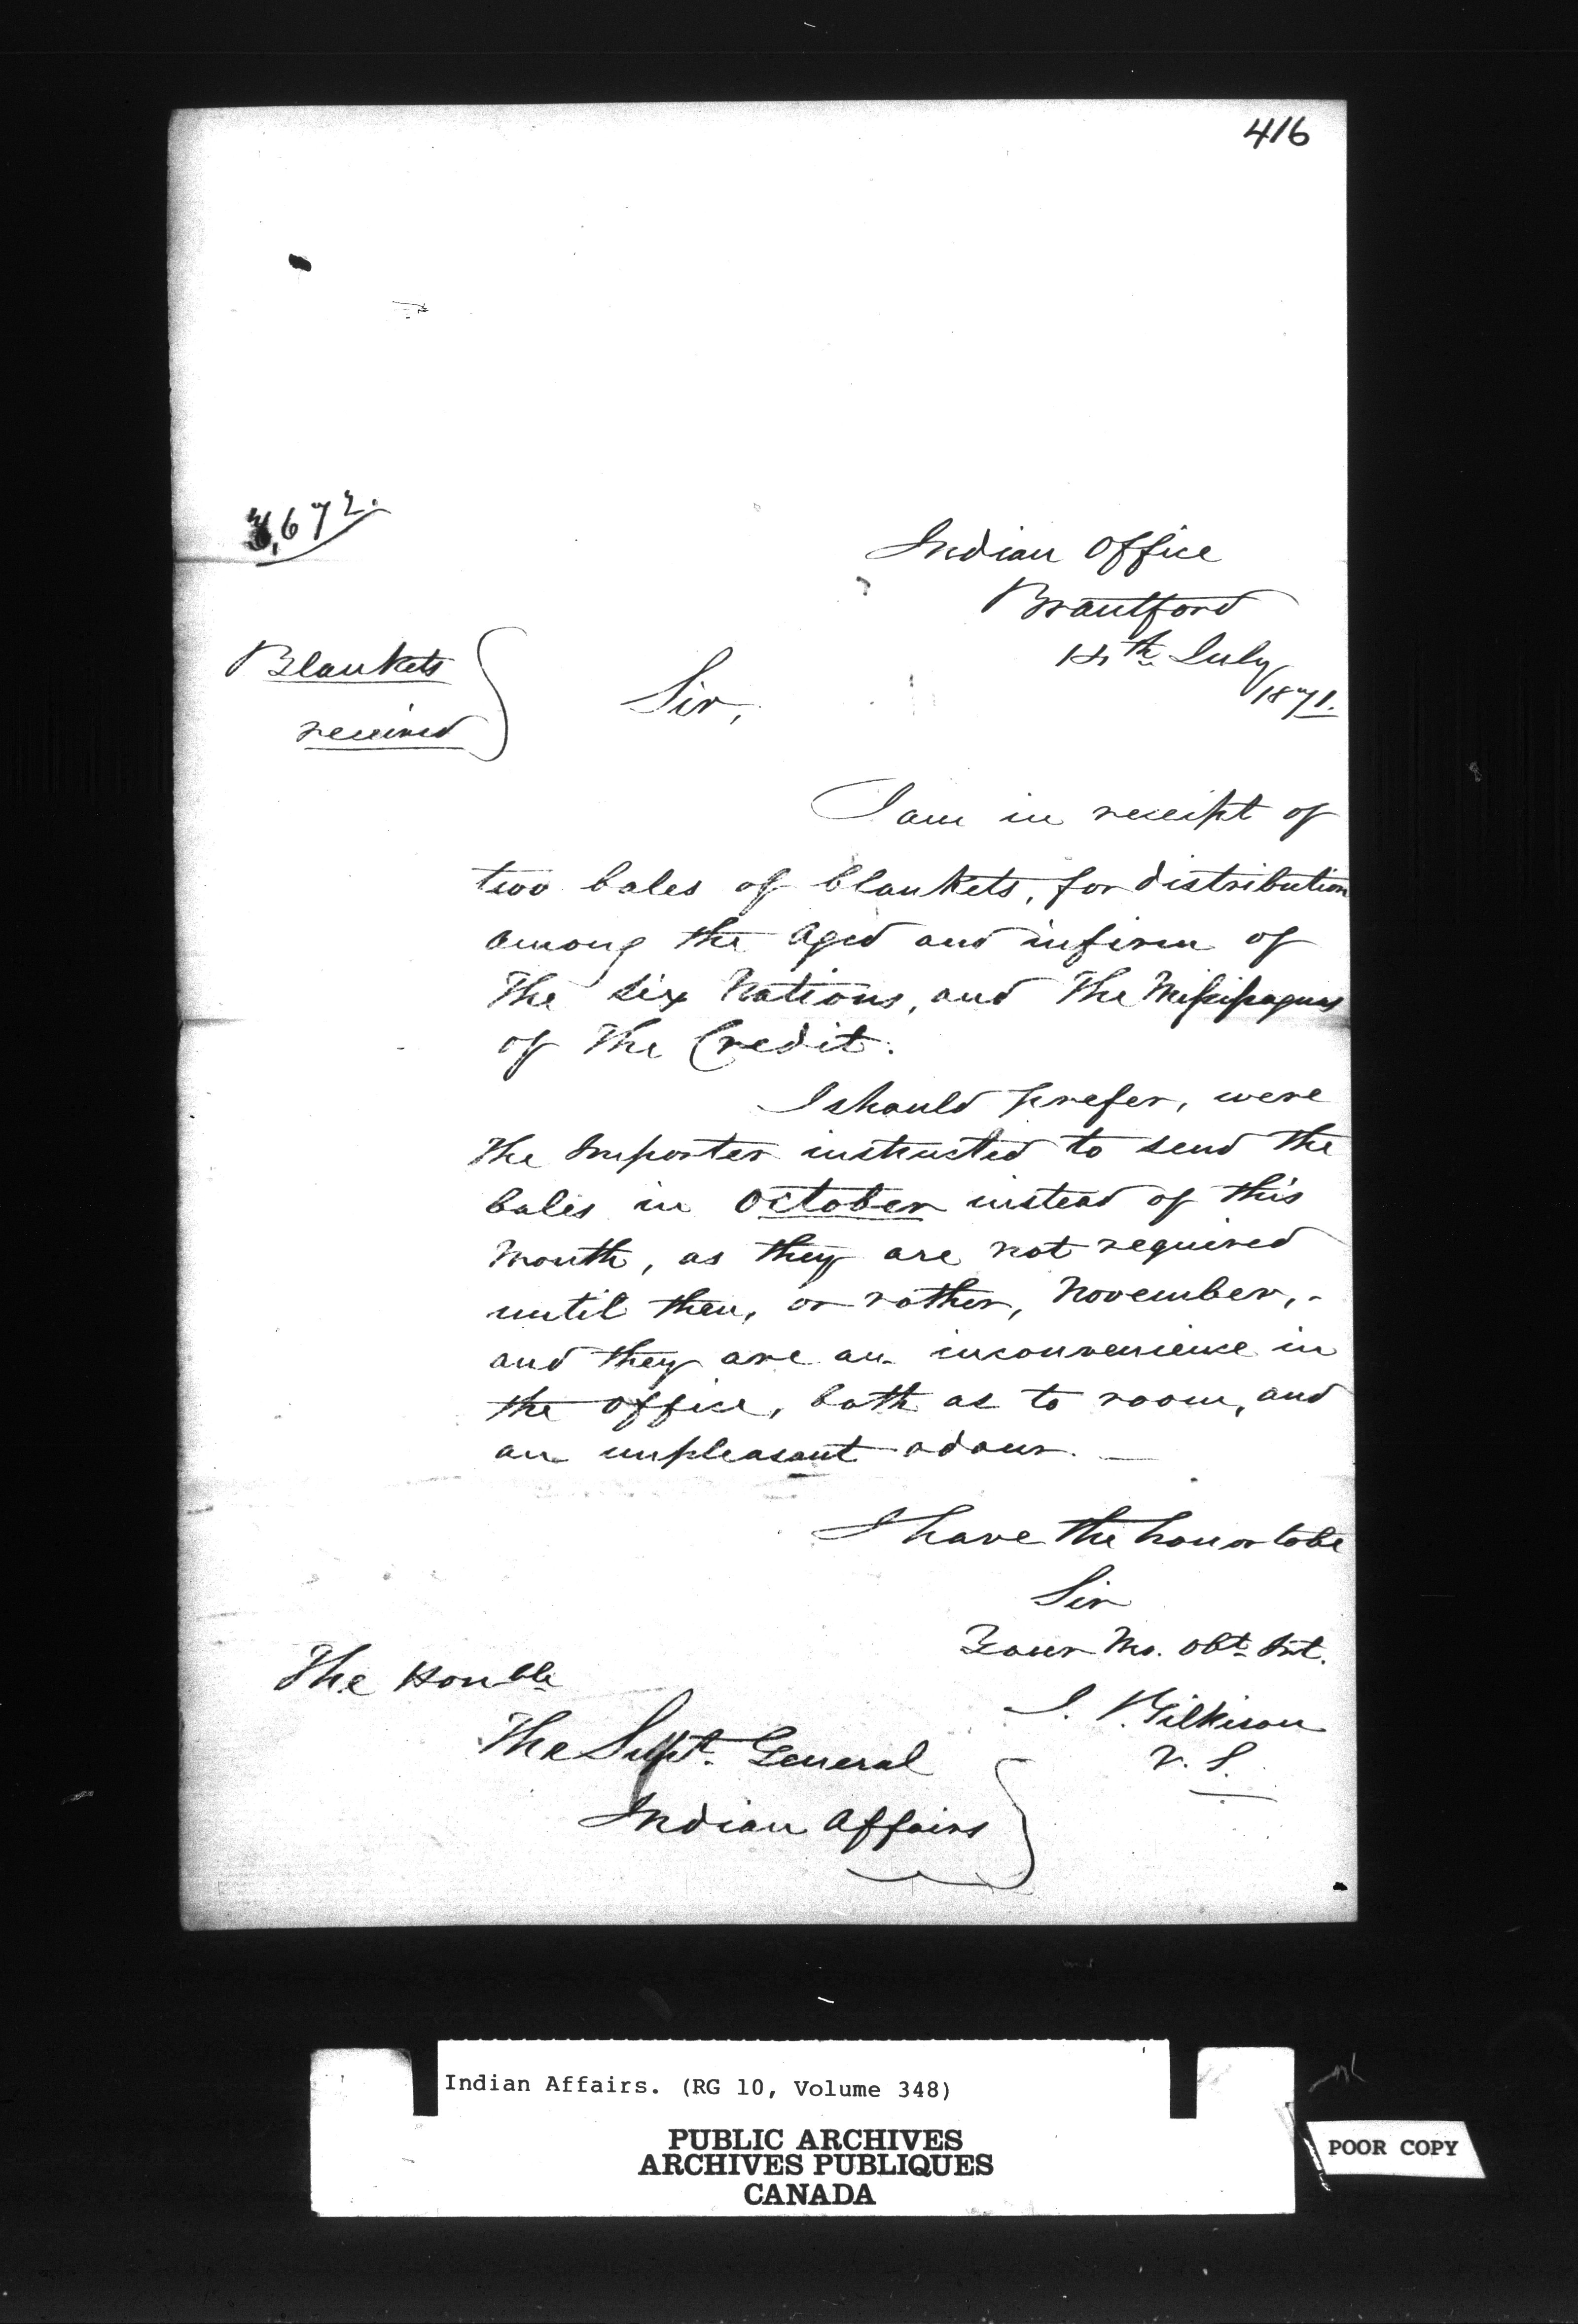 416
3,672.
Indian Office
Brantford
14th July
1871.
Blankets
received
Sir,
I am in receipt of
two bales of blankets, for distribution
among the aged and infirm of
the Six Nations, and the Missisaguas
of the Credit.
I should prefer, were
the Importer instructed to send the
bales in October instead of this
month, as they are not required
until then, or rather, November, -
and they are an inconvenience in
the office, both as to room, and
an unpleasant odour. —
I have the honor to be
Sir
Your Mo. Obt. Svt.
J. Gilkison
V. S.
The Honble
The Supt. General
Indian Affairs
Indian Affairs. (RG 10, Volume 348)
PUBLIC ARCHIVES
ARCHIVES PUBLIQUES
CANADA
POOR COPY